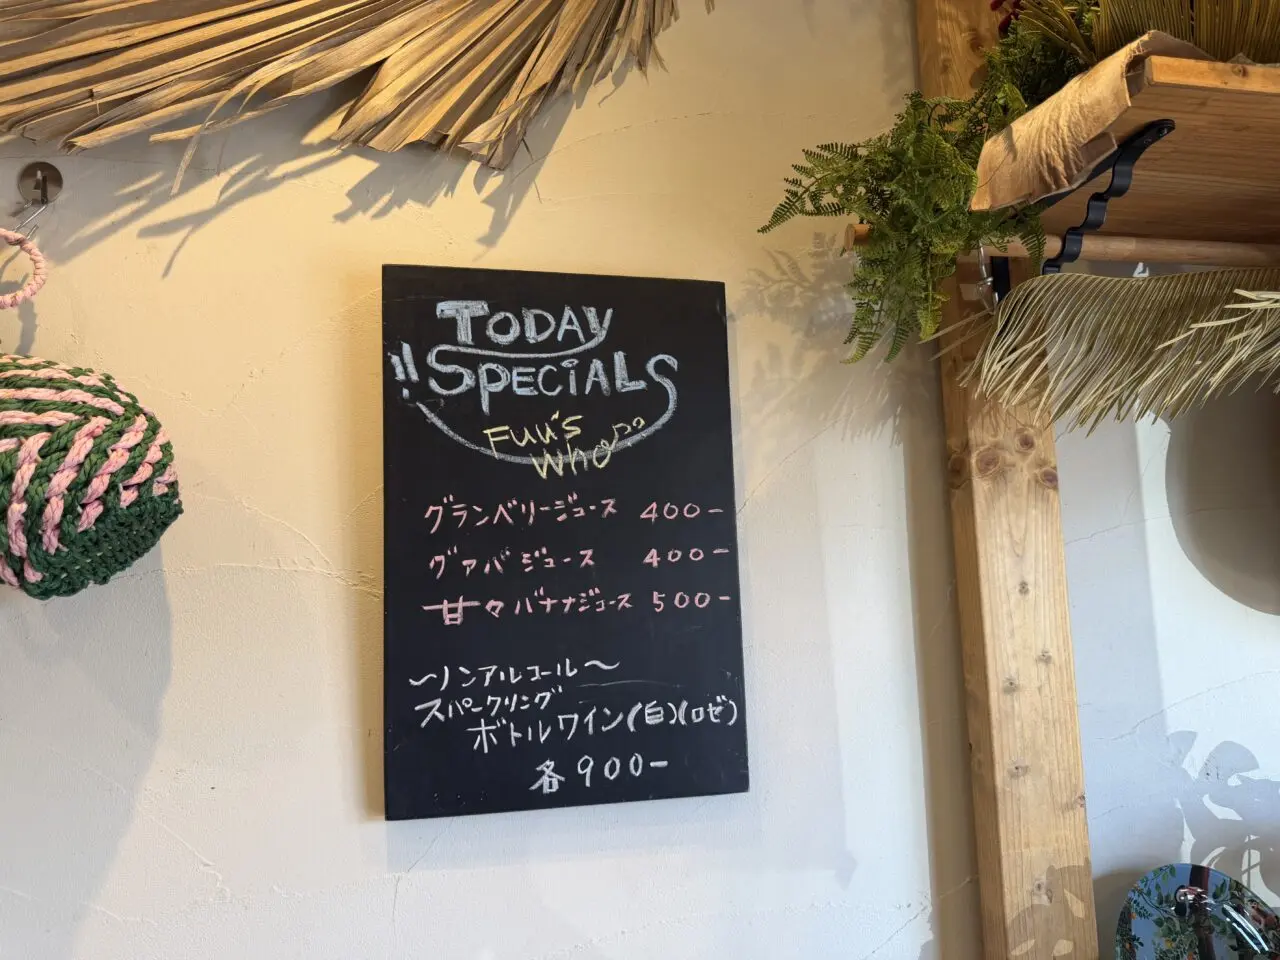 TODAY
!! SPECIALS
Fuu's
Who
グランベリージュース 400-
グァバジュース 400-
甘々バナナジュース 500-
～ノンアルコール～
スパークリング
ボトルワイン(白)(ロゼ)
各900-